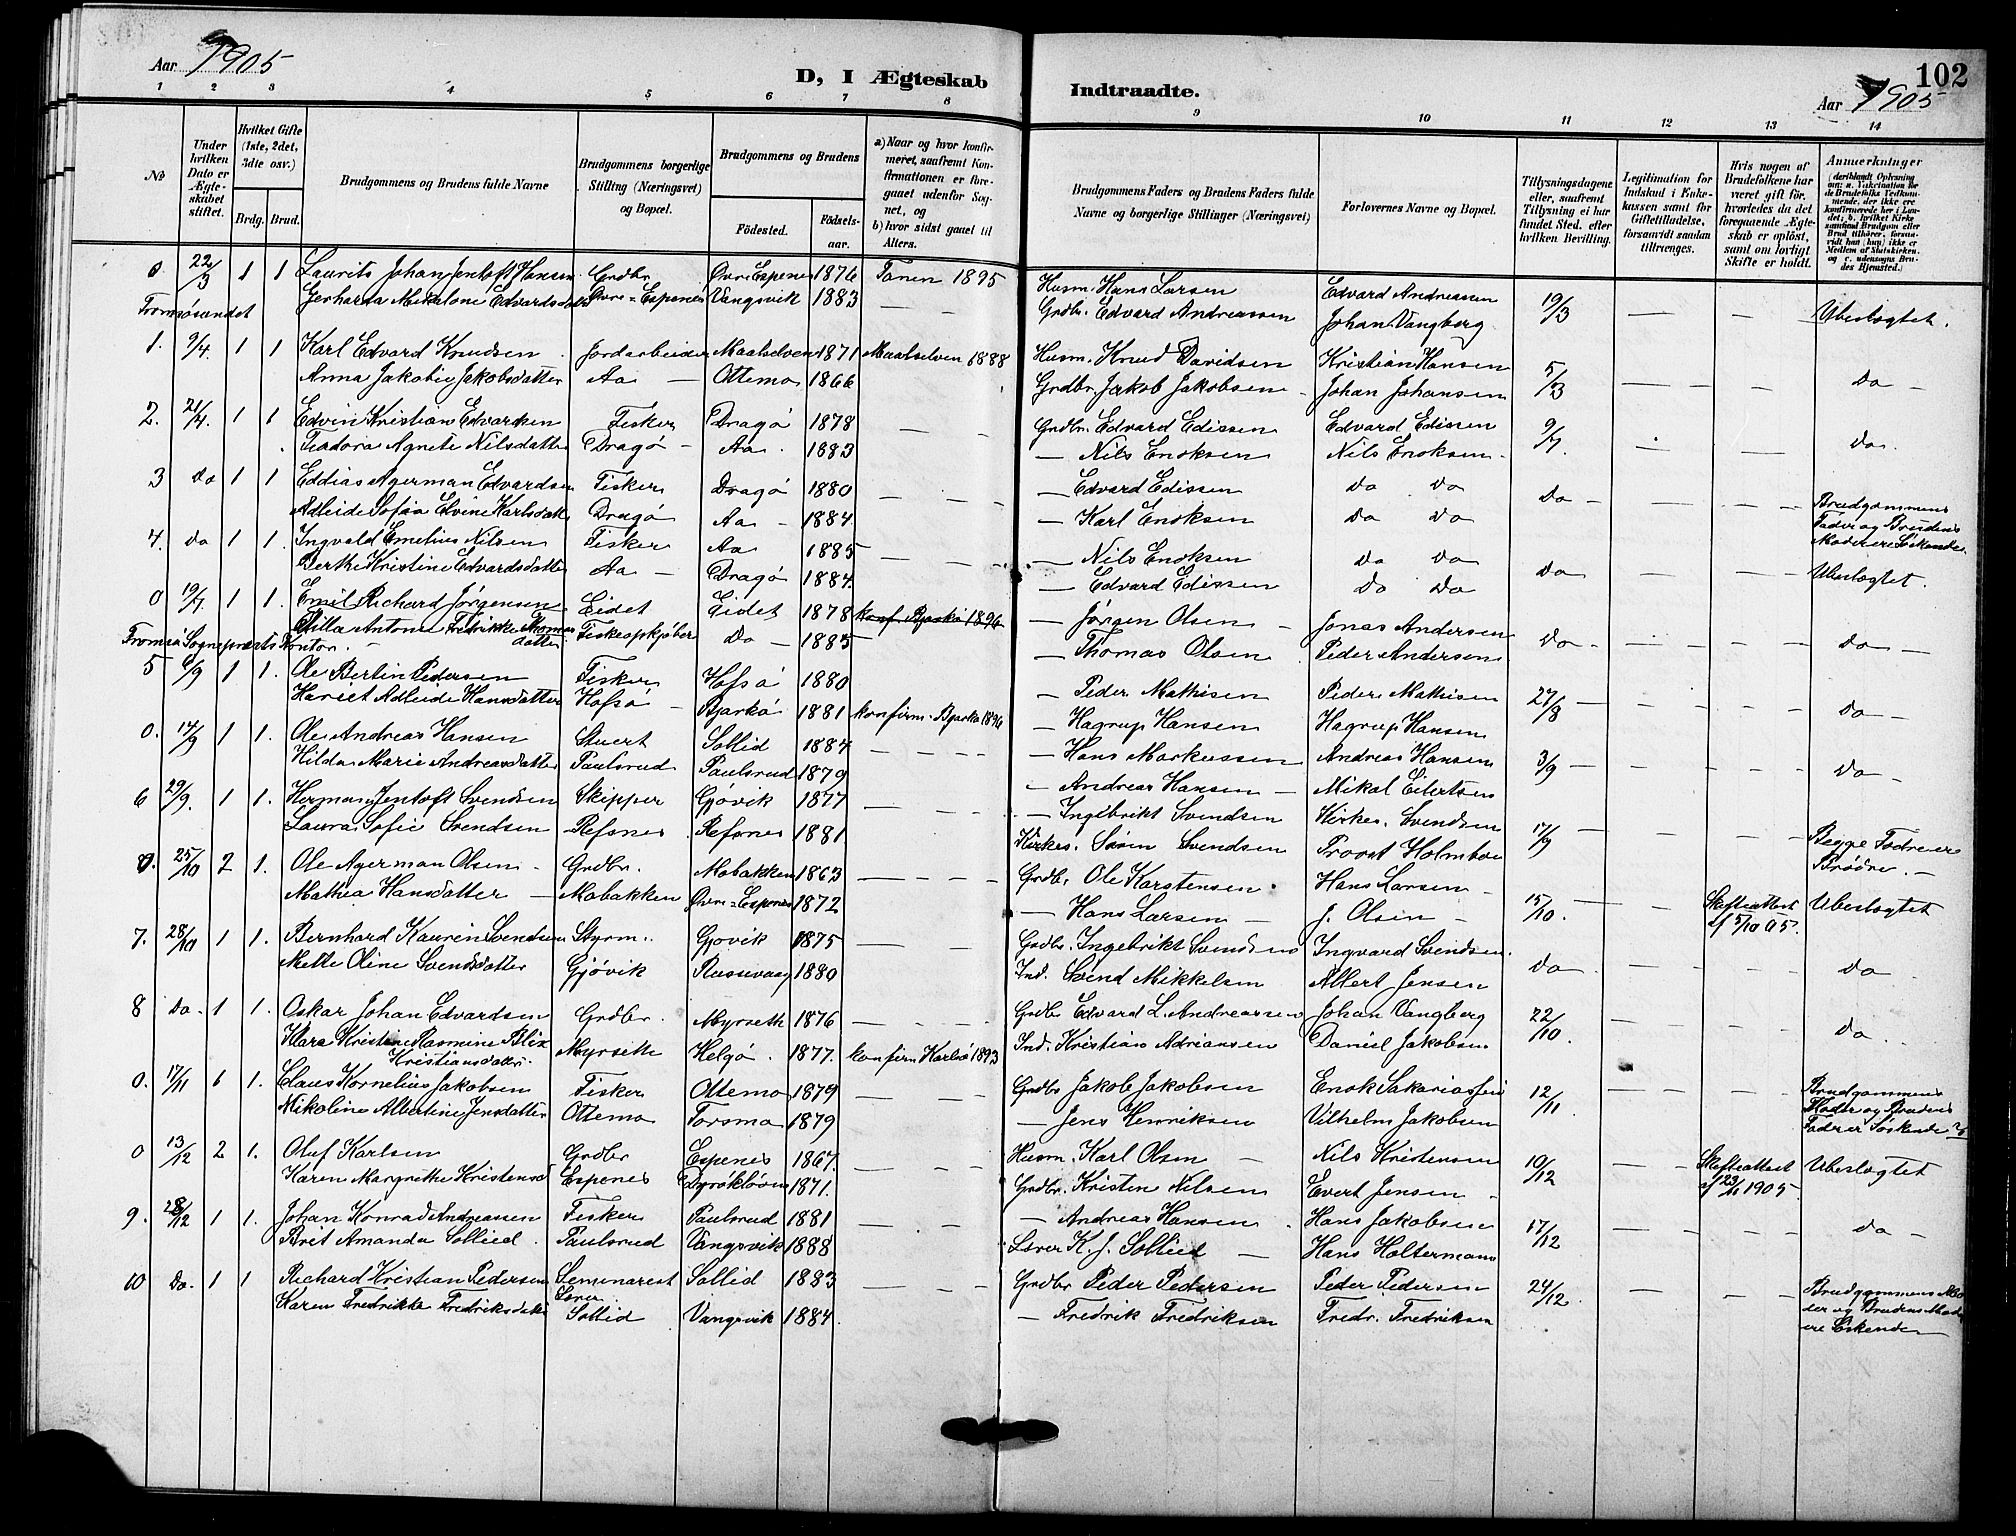 Aar 1905
D, I Ægteskab Indtraadte.
Aar 1905
102
1 2 3 4 5 6 7 8 9 10 11 12 13 14
No
Under hvilken Dato er Ægteskabet stiftet.
Hvilket Gifte (1ste, 2det, 3die osv.)
Brdg. Brud.
Brudgommens og Brudens fulde Navne
Brudgommens borgerlige Stilling (Næringsvei) og Bopæl.
Brudgommens og Brudens
Fødested. Fødselsaar.
a) Naar og hvor konfirmeret, saafremt Konfirmationen er foregaaet udenfor Sognet, og
b) hvor sidst gaaet til Alters.
Brudgommens Faders og Brudens Faders fulde Navne og borgerlige Stillinger (Næringsvei)
Forlovernes Navne og Bopæl.
Tillysningsdagene eller, saafremt Tillysning ei har fundet Sted, efter hvilken Bevilling.
Legitimation for Indskud i Enkekassen samt for Giftetilladelse, forsaavidt saadan tiltrænges.
Hvis nogen af Brudefolkene har været gift før, hvorledes da det foregaaende Ægteskab er opløst, samt om lovligt Skifte er holdt.
Anmerkninger (deriblandt Oplysning om: a. Vakcination for de Brudefolks Vedkommende, der ikke ere konfirmerede her i Landet; b. hvilket Kirkesamfund Brudgom eller Brud tilhører, forsaavidt han (hun) ikke er Medlem af Statskirken, og c. udensogns Brudes Hjemsted.)
0 22/3 1 1 Laurits Johan Jentoft Hansen Grdbr. Øvre-Espenes 1876 Tanen 1895 Husm. Hans Larsen Edvard Andreassen 19/3 — — Ubeslægtet.
Tromsøsundet Gerharda Mikalone Edvardsdatter Øvre-Espenes Vangsvik 1883 — Grdbr. Edvard Andreassen Johan Vangberg
1. 9/4. 1 1 Karl Edvard Knudsen Jordarbeider Maalselven 1871 Maalselven 1888 Husm. Knud Davidsen Kristian Hansen 5/3 — — Do —
Anna Jakobie Jakobsdatter Aa — Ottemo 1866 Grdbr. Jakob Jakobsen Johan Johansen
2. 21/4. 1 1 Edvin Kristian Edvardsen Fisker Dragø 1878 — Grdbr. Edvard Edissen Edvard Edissen 9/7. Do.
Teadora Agnete Nilsdatter Dragø — Aa. 1883 — Nils Enoksen Nils Enoksen
3 Do 1 1 Eddias Agerman Edvardsen Fisker Dragø 1880 — Edvard Edissen Do Do Do — Brudgommens Fader og Brudens Moder ere Søskende.
Adleide Sofia Elvine Karlsdatter Dragø Aa — 1884. — Karl Enoksen Do Do
4. Do 1 1. Ingvald Emelius Nilsen Fisker Aa 1885 — Nils Enoksen Do Do Do — Ubeslægtet.
Berthe Kristine Edvardsdatter Aa — Dragø 1884. — Edvard Edissen Do Do
0 19/7. 1 1. Emil Richard Jørgensen Eidet Eidet 1878 konf. Bjarkø 1896 — Jørgen Olsen Jonas Andersen Do — Do —
Tromsø Sogneprests Kontor. Antone Fredrikke Thomasdatter Fiskeopkjøber Do — 1885 — Thomas Olsen Peder Andersen
5 6/9 1 1. Ole Bertin Pedersen Fisker Hofsø 1880 — Peder Mathisen Peder Mathisen 27/8 — Do —
Hariet Adleide Hansdatter Hofsø — Bjarkø 1881 konfirm. Bjarkø 1896 — Hagrup Hansen Hagrup Hansen
0. 14/9 1 1. Ole Andreas Hansen Stuert Sollid 1884 — Hans Markussen Andreas Hansen 3/9 — Do —
Hilda Marie Andreasdatter Paulsrud Paulsrud 1879 — Andreas Hansen — Mikal Eilertsen
6 29/9. 1 1. Herman Jentoft Svendsen Skipper Gjøvik 1877 — Ingebrikt Svendsen Kirkes. Svendsen 17/9 — Begge Fædre ere Brødre. —
Laura Sofie Svendsen Refsnes Refsnes 1881 Kirkes. Søren Svendsen Provst Holmboe
0. 25/10 2 1. Ole Agerman Olsen Grdbr. Mobakken 1863 — Grdbr Ole Karstensen Hans Larsen — 15/10. Skifteattest af 5/10 05. Ubeslægtet
Mathea Hansdatter — Mobakken Øvre-Espenes 1872 — Hans Larsen — J. Olsen —
7. 28/10 1 1. Bernhard Kaurin Svendsen Styrm. Gjøvik 1875 — Grdbr. Ingebrikt Svendsen Ingvard Svendsen. Do — Do
Mette Oline Svendsdatter Gjøvik Russevaag 1880 Ind. Svend Mikkelsen Albert Jensen
8 Do. 1 1. Oskar Johan Edvardsen Grdbr. Myrseth 1876 — Grdbr Edvard L. Andreassen Johan Vangberg 22/10. — Do
Klara Kristine Rasmine Blix Kristiansdatter. Myrseth Helgø. 1877. konfirm Karlsø 1893 Ind. Kristian Adriansen Daniel Jakobsen
0. 17/11 6 1. Claus Kornelius Jakobsen Fisker Ottemo 1879 — Grdbr Jakob Jakobsen Enok Sakariassen 12/11. — Brudgommens Moder og Brudens Fader er Søskende
Nikoline Albertine Jensdatter Ottemo Torsmo 1879 — Jens Henriksen Vilhelm Jakobsen
0 13/12 2 1. Oluf Karlsen Grdbr Espenes 1867. — Husm. Karl Olsen — Nils Kristensen 10/12 — Skifteattest af 23/11 1905. Ubeslægtet
Karen Margrethe Kristensd Espenes Dyrøkløven 1871. Grdbr. Kristen Nilsen Evert Jensen —
9. 28/12 1 1. Johan Konrad Andreassen Fisker Paulsrud 1881 — Andreas Hansen. Hans Jakobsen 17/12 — Do —
Brit Amanda Sollied. Paulsrud Vangsvik 1888 Lærer K. J. Sollied — Hans Holtermann
10 Do. 1 1 Richard Kristian Pedersen Seminarist Lærer Sollid 1883 — Grdbr Peder Pedersen Peder Pedersen 24/12. — Brudgommens Moder og Brudens Moder ere Søskende
Karen Fredrikke Fredriksdatter Sollid Vangsvik 1884. — Fredrik Fredriksen Fredr. Fredriksen